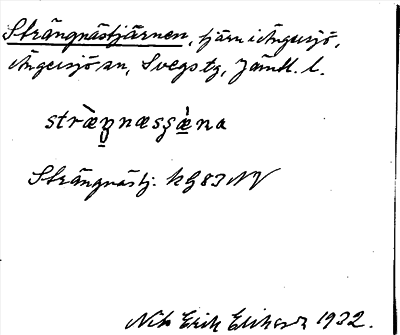 Strängnästjärnen, tjärn i Ängersjö,
Ängersjö sn, Svegs tg, Jämtl. l.
stræ̀ŋnæsʂæ̀na
Strängnästj. kG 83 NV
Nils Erik Eliasson 1932.